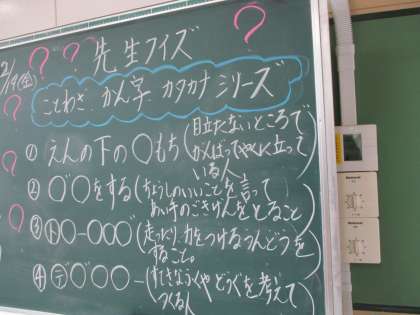 先生クイズ
ことわざ.かん字.カタカナシリーズ
① えんの下の〇もち(目立たないところで
がんばってやくに立って
いる人
② ゴ〇をする(ちょうしのいいことを言って
あい手のごきげんをとること
③ ト〇ー〇〇〇(走ったり、力をつけるうんどうを
すること。
④ デ〇〇〇ー(すてきなふくやどうぐを考えて
つくる人